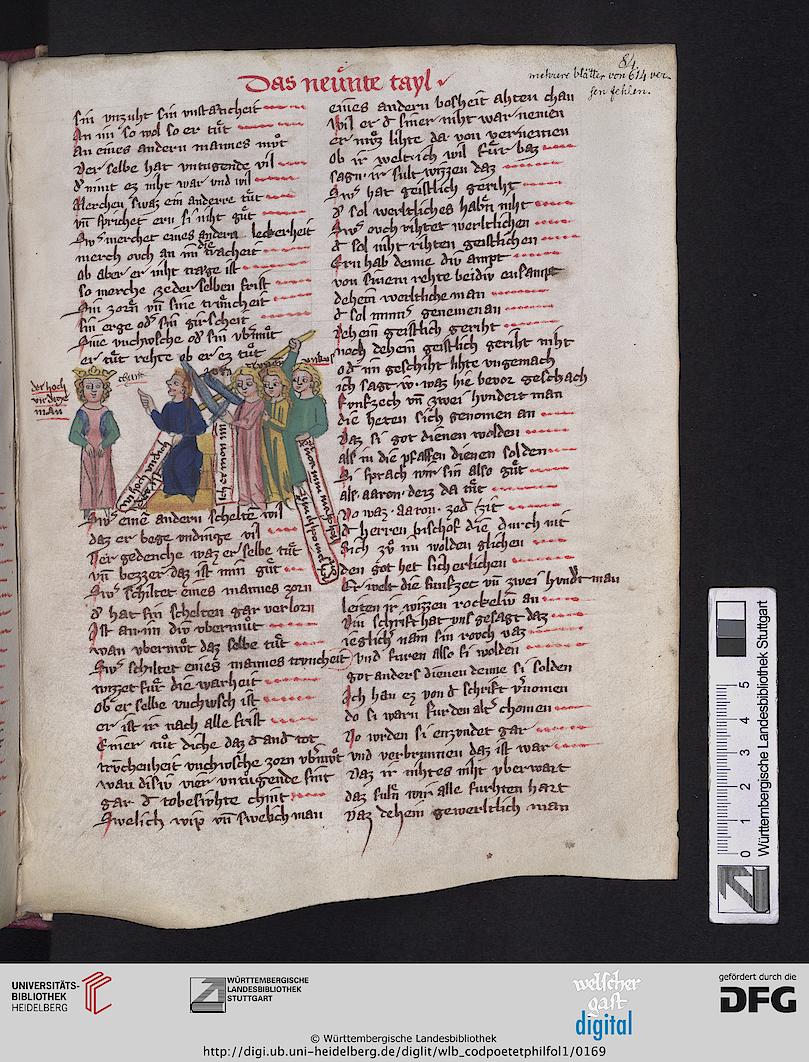 84.
mehrere blätter von 614 ver-
sen fehlen.
Das neunte tayl
sin vnzuht sin vnstaticheit
An im so wol so er tůt
an eines andern mannes můt
Der selbe hat vntugende vil
d nimt ez niht war vnd wil
Merchen swaz ein anderre tůt
vn sprichet ern si niht gůt
Swˢ merchet eines andern leckerheit
merch ovch an im die tracheit
ob aber er niht trage ist
so merche ze der selben frist
Sin zorn vn sine truncheit
sin erge odˢ sin girscheit
Sine vnchvsche odˢ sin vbˢmůt
er tůt rehte ob er ez tůt
der hoch
vertige
man
Swˢ eine andern schelte wil
daz er bege vndinge vil
Der gedenche waz er selbe tůt
vn bezzer daz ist min gůt
Swˢ schiltet eines mannes zorn
d hat sin schelten gar verlorn
Ist an im div vbermůt
wan vbermůt daz selbe tůt
Swˢ schiltet eines mannes trvncheit
wizzet fůr die warheit
ob er selbe vnchvsch ist
er ist ir nach alle frist
Einer tůt diche daz d and tůt
trvnchenheit vnchvsche zorn vbˢmůt
wan disiv vier vntůgende sint
gar d tobesvhte chint
Swelich wip vn swelich man
eines andern bosheit ahten chan
Wil er d siner niht war nemen
er mag lihte da von vernemen
ob ir welt ich wil fůr baz
sagn ir sult wizzen daz
Swˢ hat geistlich geriht
d sol werltliches habn niht
Swˢ ovch rihtet werltlichen
d sol niht rihten geistlichen
Ern hab denne div ampt
von sinem rehte beidiv ensampt
dehein werltliche man
d sol nimmˢ genemen an
Dehein geistlich geriht
noch dehein geistlich geriht niht
odˢ im geschiht lihte vngemach
ich sagt iv waz hie bevor geschach
Funfzech vn zwei hundert man
die heten sich genomen an
Daz si got dienen wolden
als in die pfaffen dienen solden
Si sprach wir sin also gůt
als aaron derz da tůt
Do waz aaron zod zit
d herren bischof die durch nit
Sich zů im wolden glichen
den got het sicherlichen
Er welt die funfzec vn zwei hundˢt man
leiten ir wizzen rockeliv an
Div schrift hat vns gesagt daz
ieglich nam sin rovch vaz
vnd furen also si wolden
got anders dienen denne si solden
Ich han ez von d schrift vˢnomen
do si warn fur den altˢ chomen
Do wrden si enzvndet gar
vnd verbrunnen daz ist war
Daz ir nihtes niht vberwart
daz suln wir alle furhten hart
Daz dehein gewerltlich man
0 1 2 3 4 5
Württembergische Landesbibliothek Stuttgart
UNIVERSITÄTS-
BIBLIOTHEK
HEIDELBERG
WÜRTTEMBERGISCHE
LANDESBIBLIOTHEK
STUTTGART
welscher
gast
digital
gefördert durch die
DFG
© Württembergische Landesbibliothek
http://digi.ub.uni-heidelberg.de/diglit/wlb_codpoetetphilfol1/0169